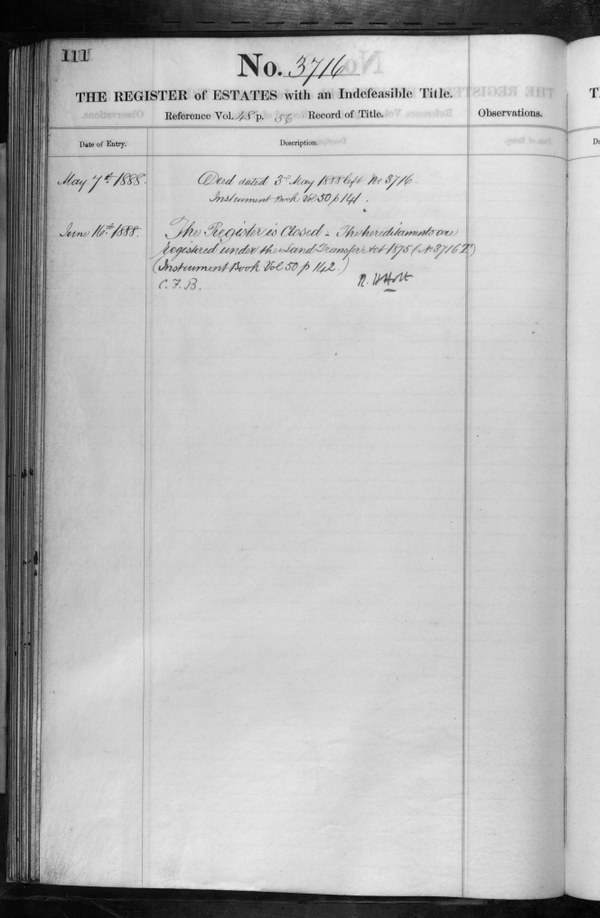 111
No. 3716
THE REGISTER of ESTATES with an Indefeasible Title.
Reference Vol. 48 p. 56 Record of Title.
Observations.
Date of Entry.
Description.
May 7th 1888.
Deed dated 3d May 1888 left No 3716
Instrument Book Vol 50 p 141.
June 16th 1888.
The Register is Closed - The hereditaments are
registered under the Land Transfer Act 1875 (No 3716 T.)
(Instrument Book Vol 50 p 142.)
C. F. B.
N. H Holt
T
D